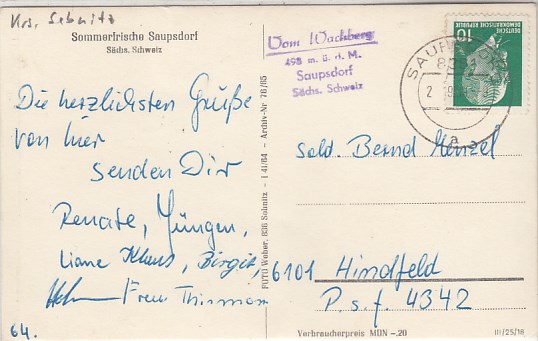 Krs. Sebnitz
Sommerfrische Saupsdorf
Sächs. Schweiz
Die herzlichsten Grüße
von hier
senden Dir
Renate, Jürgen,
Liane Klaus, Birgit,
Frau
64.
FOTO Weber, 836 Sebnitz - I 41/64 - Archiv-Nr 76/65
Vom Wachberg
498 m. ü. d. M.
Saupsdorf
Sächs. Schweiz
DEUTSCHE
DEMOKRATISCHE REPUBLIK
10
a
Sold. Bernd Henzel
6101 Hindfeld
P.s.f. 4342
Verbraucherpreis MDN -,20
III/25/18